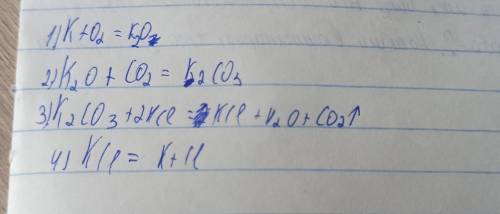 1) K + O2 = K2O2
2) K2O + CO2 = K2CO3
3) K2CO3 + 2KCl = 2KCl + K2O + CO2↑
4) KCl = K + Cl